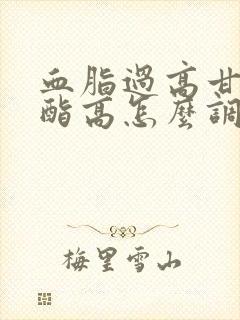 血脂過高甘
酯高怎麼調
梅里雪山